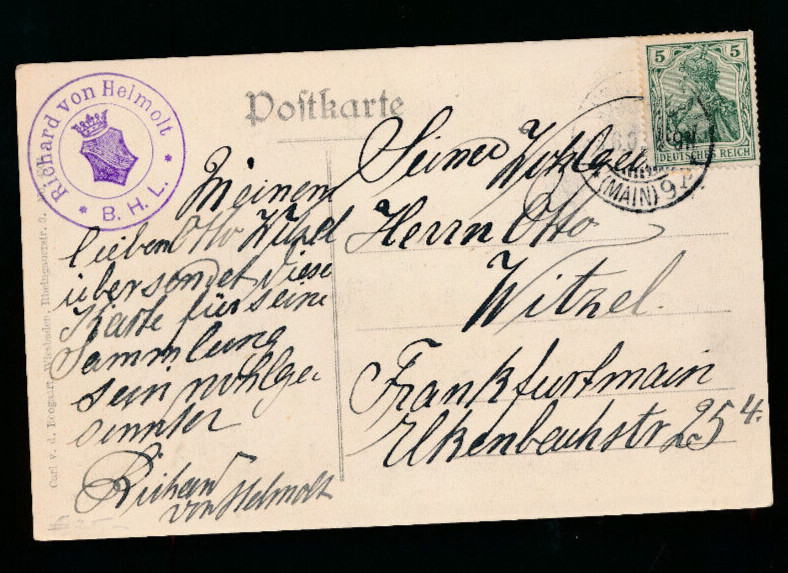 Postkarte
Richard von Helmolt
* B. H. L. *
5 5
DEUTSCHES REICH
(MAIN) 9
Meinem
lieben Otto Witzel
übersendet diese
Karte für seine
Sammlung
sein wohlge-
sinnter
Richard
von Helmolt
Seiner Wohlgeb
Herrn Otto
Witzel.
Frankfurtmain
Elkenbachstr 25 4.
Carl v. d. Boogaart, Wiesbaden, Rheingauerstr.